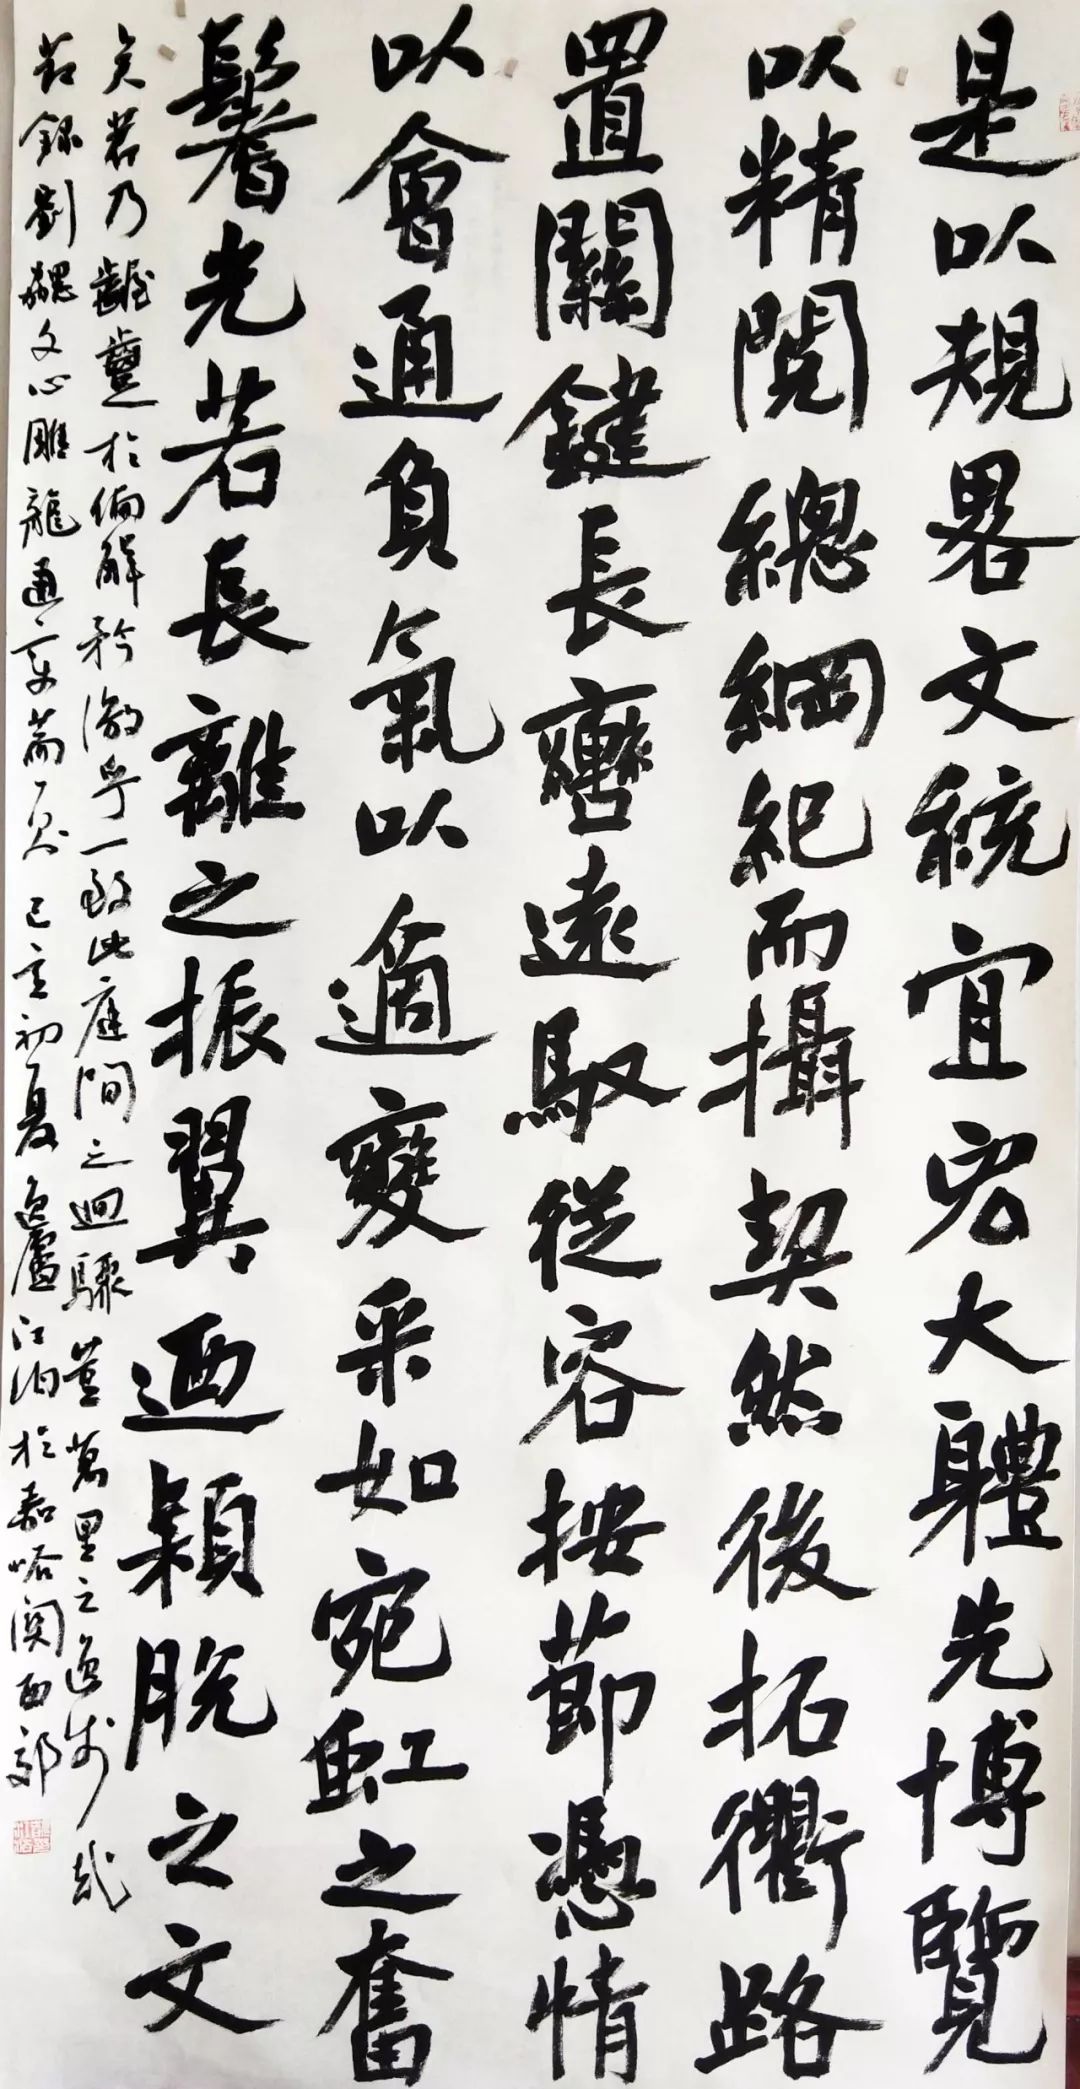 是以規畧文統宜宏大體先博覽
以精閱總綱紀而攝契然後拓衢路
置關鍵長轡遠馭從容按節憑情
以會通負氣以適變采如宛虹之奮
鬐光若長離之振翼迺穎脫之文
矣若乃齷齪於偏解矜激乎一致此庭間之迴驟豈萬里之逸步哉
節錄劉勰文心雕龍通變篇一則 己亥初夏 逸廬江泊於嘉峪関西郊